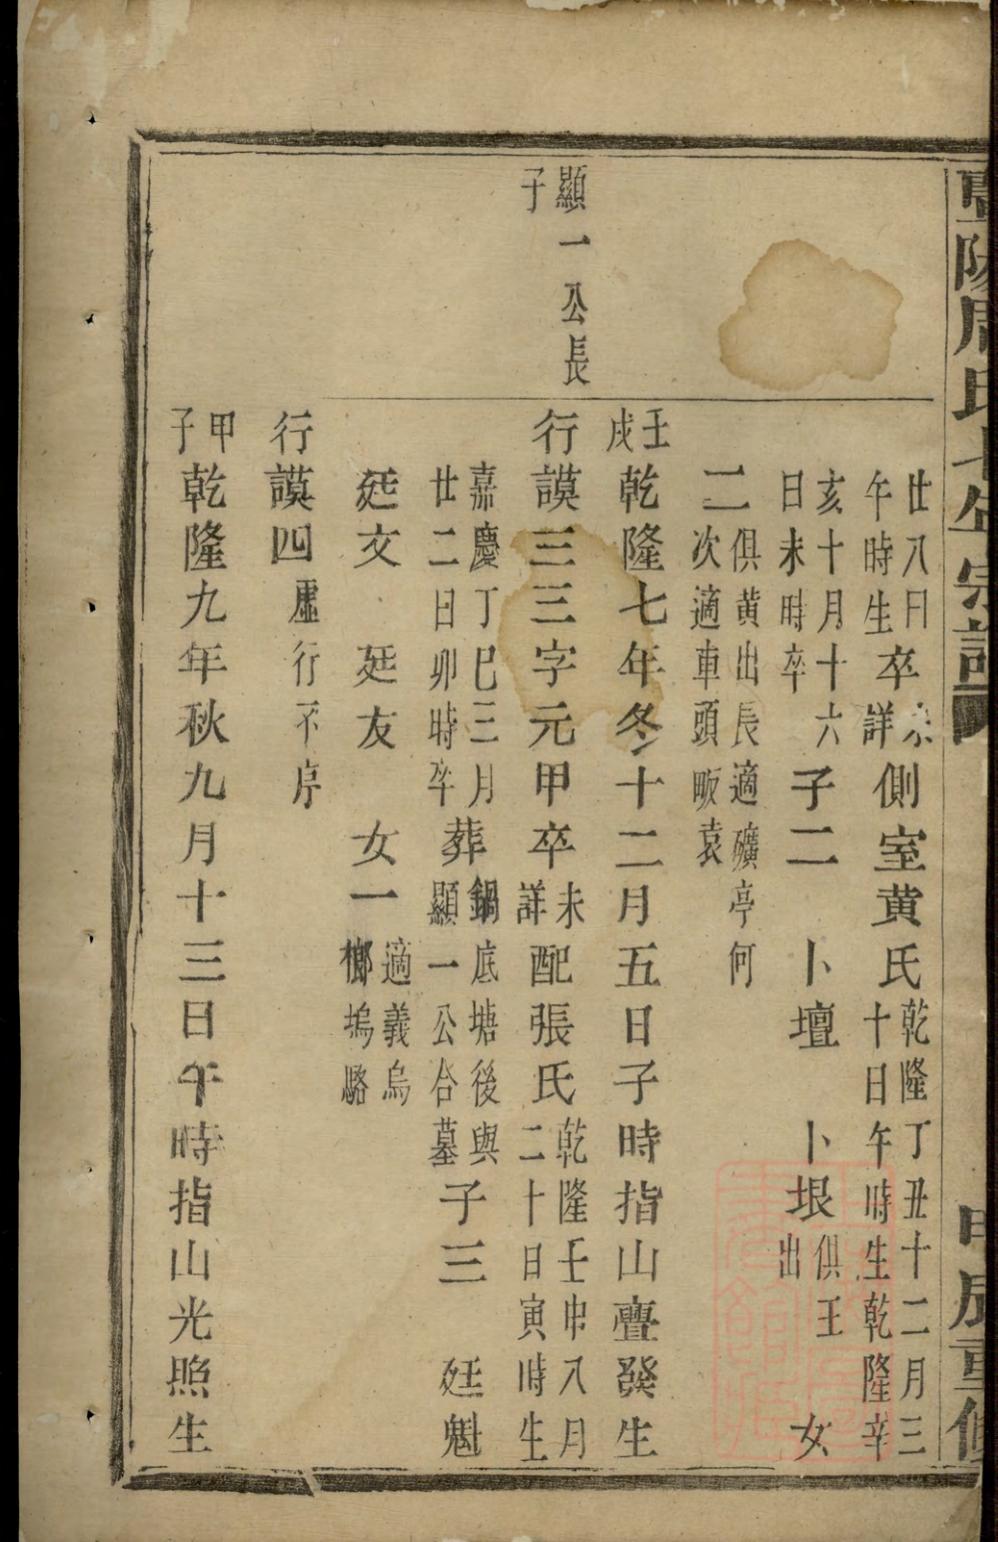 暨陽周氏十年宗譜
甲辰重修
廿八日
午時生
卒
未
詳
側室黃氏
乾隆丁丑十二月三
十日午時生乾隆辛
亥十月十六
日未時卒
子二 卜壇 卜垠
俱王
出
女
二
俱黃出長適礦亭何
次適車頭畈袁
壬
戌
乾隆七年冬十二月五日子時指山亹發生
顯一公長
子
行謨三三字元甲卒
未
詳
配張氏
乾隆壬申八月
二十日寅時生
嘉慶丁巳三月
廿二日卯時卒
葬
鍋底塘後與
顯一公合墓
子三 廷魁
廷文 廷友 女一
適義烏
櫛塢駱
行謨四
虛
行不序
甲
子
乾隆九年秋九月十三日午時指山光照生